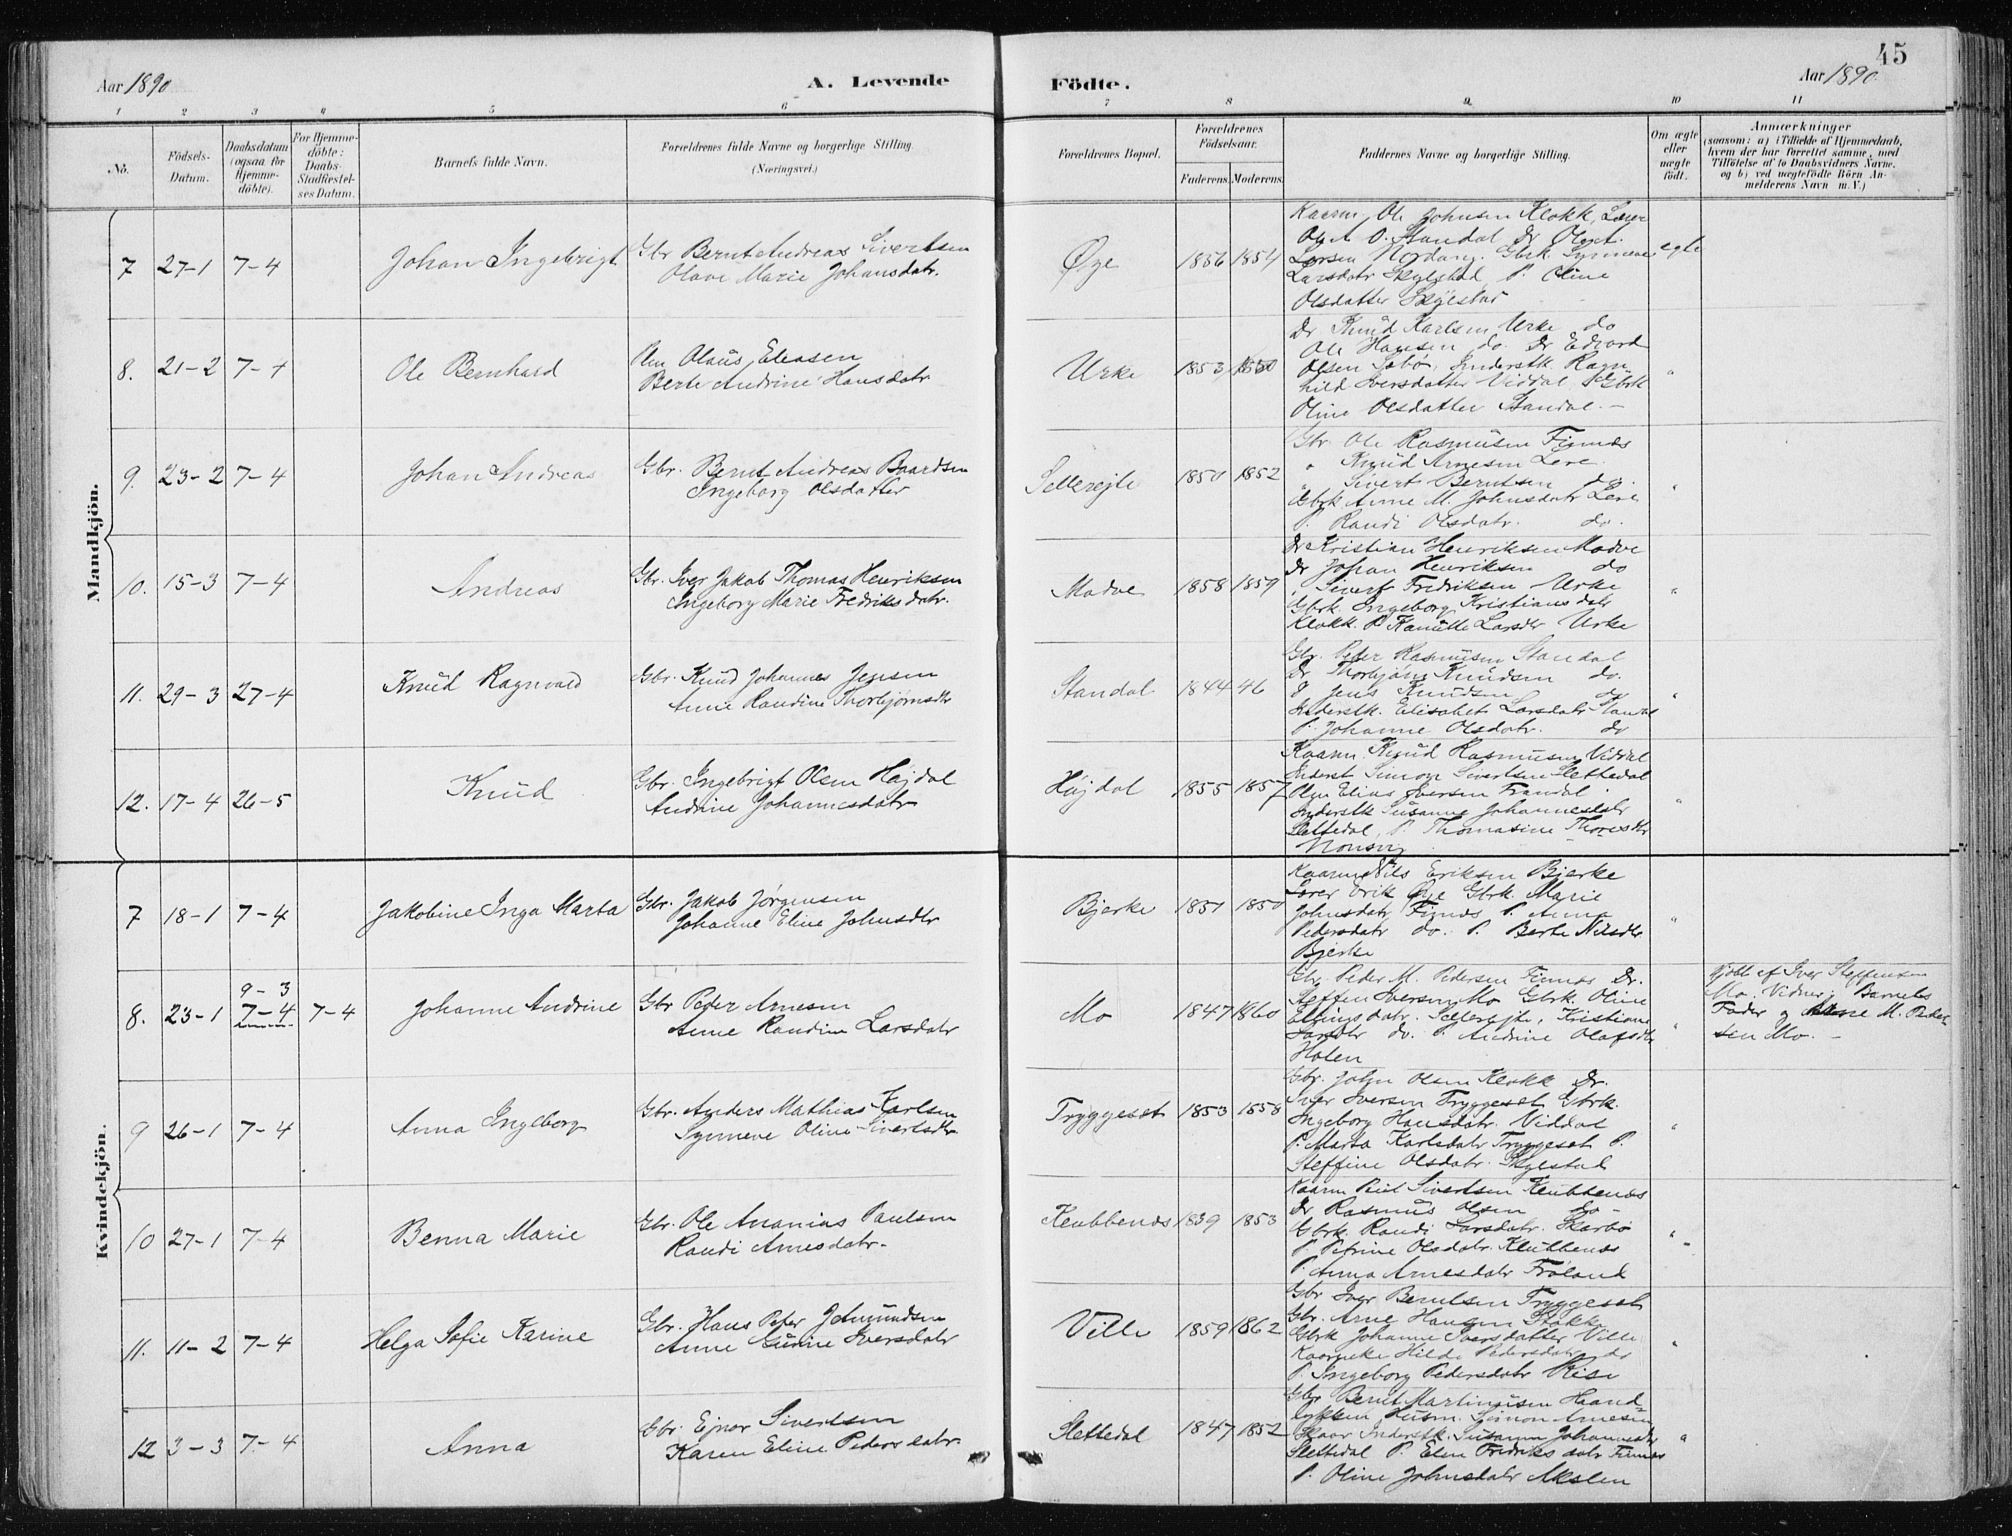 45
Aar 1890
A. Levende
Födte.
Aar 1890
1 2 3 4 5 6 7 8 9 10 11
No.
Födsels-
Datum.
Daabsdatum
(ogsaa for
Hjemme-
döbte).
For Hjemme-
döbte:
Daabs-
Stadfæstel-
ses Datum.
Barnets fulde Navn.
Forældrenes fulde Navne og borgerlige Stilling.
(Næringsvei.)
Forældrenes Bopæl.
Forældrenes
Födselsaar.
Faderens. Moderens.
Faddernes Navne og borgerlige Stilling.
Om ægte
eller
uægte
födt.
Anmærkninger
(saasom: a) i Tilfælde af Hjemmedaab,
hvem der har forrettet samme, med
Tilföielse af to Daabsvidners Navne,
og b) ved uægtefödte Börn An-
melderens Navn m. V.)
Mandkjön.
7 27-1 7-4 Johan Ingebrigt
Gbr Bernt Andreas Sivertsen
Olave Marie Johansdatr.
Øye 1856 1854
Kaarm. Ole Johnsen Klokk, Lærer
Ole A O. Standal Dr Ole A.
Larsen Nordang. Gbrk. Synneve
Larsdatr Skylstad, P. Oline
Olsdatter
egte
8. 21-2 7-4 Ole Bernhard
Olaus Eleasen
Berte Andrine Hansdatr
Urke 1853 1850
Dr Knud Karlsen Urke do
Ole Hansen do Dr Edvard
Olsen Sæbø, Inderstk. Ragn-
hild Iversdatter Viddal, Gbrk
Oline Olsdatter Standal. -
"
9. 23-2 7-4 Johan Andreas
Gbr. Bernt Andreas Baardsen
Ingeborg Olsdatter
Sellereite 1850 1852
Gbr. Ole Rasmusen Finnes
" Knud Arnesen Lere
" Sivert Berntsen do.
Gbrk Anne M. Johnsdatr Lere
P. Randi Olsdatr. do.
"
10. 15-3 7-4 Andreas
Gbr. Iver Jakob Thomas Henriksen
Ingeborg Marie Fredriksdatr.
Madve 1858 1859
Dr Kristian Henriksen Madve
Dr Johan Henriksen do
" Sivert Fredriksen Urke
Gbrk. Ingeborg Kristiansdatr
Klokk. P Larsdtr Urke
"
11. 29-3 27-4 Knud Ragnvald
Gbr. Knud Johannes Jensen
Anne Randine Thorbjørnsdtr
Standal 1844 46
Gbr. Peter Rasmusen Standal
Dr Thorbjørn Knudsen do.
Jens Knudsen do
Inderstk. Elisabet Larsdatr
P. Johanne Olsdatr. do
"
12. 17-4 26-5 Knud
Gbr. Ingebrigt Olsen Højdal
Andrine Johannesdatr
Højdal 1855 1857
Kaarm. Knud Rasmusen Viddal
Inderst Simon Sivertsen Slettedal
Elias Iversen
Inderstk Susanne Johannesdatr
Slettedal, P. Thomasine Thoresdtr
"
Kvindekjön.
7 18-1 7-4 Jakobine Inga Marta
Gbr. Jakob Jørgensen
Johanne Eline Johnsdtr
Bjerke 1851 1850
Kaarm Nils Eriksen Bjerke
Lærer Erik Øye Gbrk. Marie
Johnsdatr Finnes P. Anna
Pedersdatr do. P. Berte Nilsdtr
Bjerke
"
8. 23-1 9-3
7-4 7-4 Johanne Andrine
Gbr Peder Arnesen
Anne Randine Larsdatr
Mo 1847 1860
Gbr Peder M. Pedersen Finnes Dr.
Steffen Iversen Mo Gbrk. Oline
Ellingsdatr. Sellereite, Kristiane
Larsdtr do. P. Andrine Olafsdtr
Holen
"
Hjdbt af Iver Steffensen
Mo. Vidner: Barnets
Fader og M. Peder-
sen Mo. -
9 26-1 7-4 Anna Ingeborg
Gbr. Anders Mathias Karlsen
Synneve Oline Sivertsdtr.
Tryggeset 1853 1858
Gbr. John Olsen Klokk Dr.
Iver Iversen Tryggeset Gbrk.
Ingeborg Hansdatr. Viddal
P. Marta Karlsdatr Tryggeset P.
Steffine Olsdatr. Skylstad
"
10 27-1 7-4 Benna Marie
Gbr. Ole Ananias Paulsen
Randi Arnesdatr.
Klubbenes 1839 1853
Kaarm Paul Sivertsen Klubbenes
Dr Rasmus Olsen do -
Gbrk. Randi Larsdatr. Skarbø
P. Petrine Olsdatr. Klubbenes
P. Anna Arnesdatr Frøland
"
11. 11-2 7-4 Helga Sofie Karine
Gbr. Hans Peter Jetmundsen
Anne Gurine Iversdatr
Ville 1859 1862
Gbr Iver Berntsen Tryggeset
Gbr. Arne Hansen Stakke
Gbrk Johanne Iversdatter Ville
Kaarenke Hilde Pedersdatr do
P. Ingeborg Pedersdatr Rise
"
12 3-3 7-4 Anna
Gbr. Ejnar Sivertsen
Karen Eline Pedersdatr.
Slettedal 1847 1852
Gbr Bernt Martinusen Haand-
lykken, Husm. Simon Arnesen
Skaar Inderstk. Susanne Johannesdtr
Slettedal P. Elen Fredriksdatr Finnes
P. Oline Johnsdatr Akslen
"